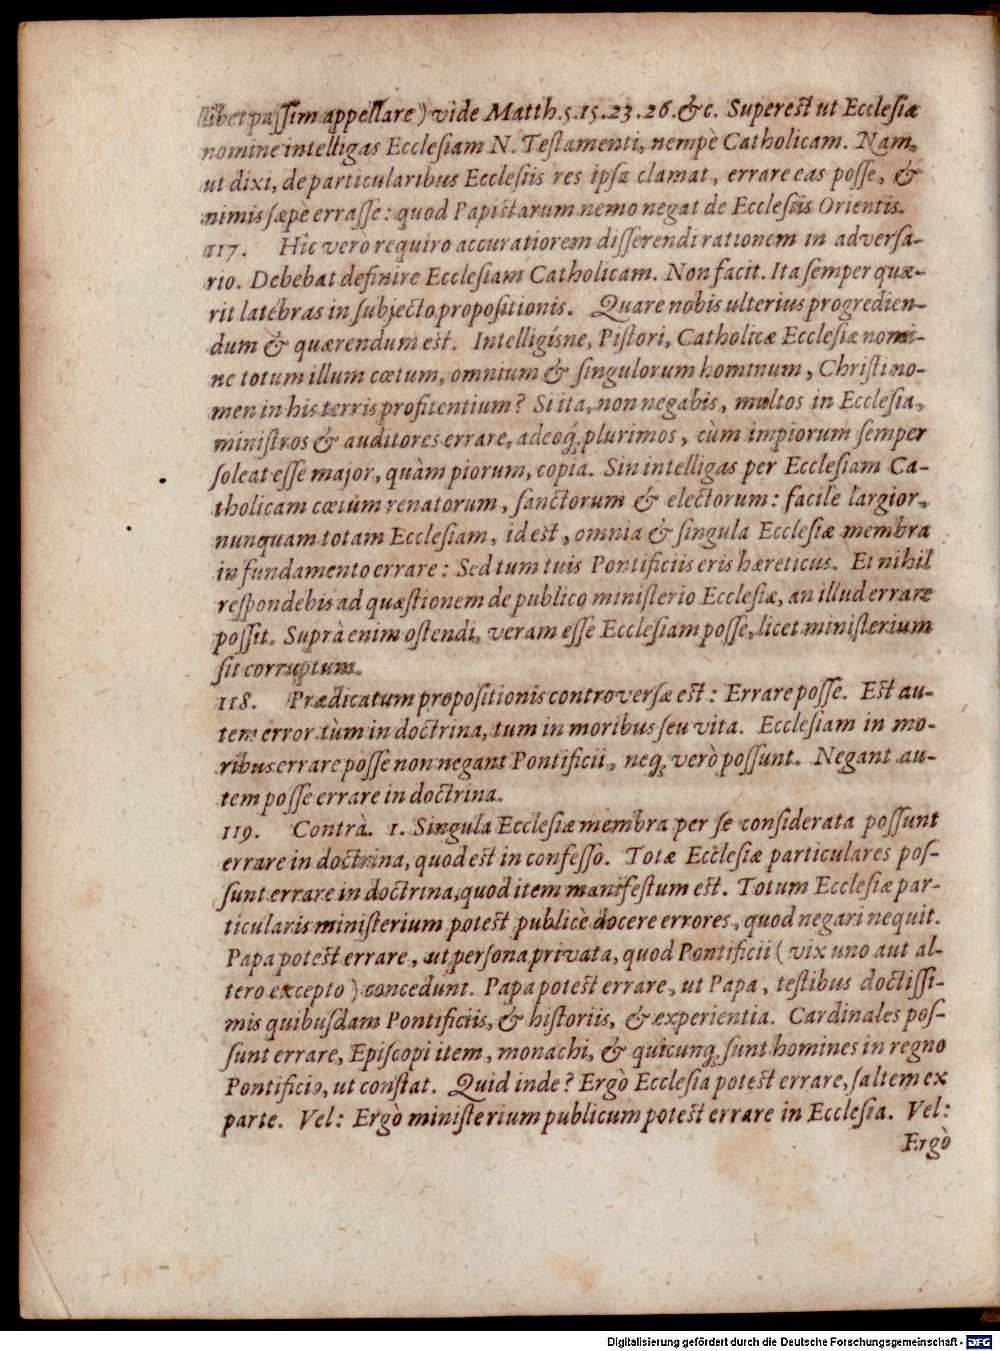 libet passim appellare) vide Matth. 5. 15. 23. 26. &c. Superest ut Ecclesiæ
nomine intelligas Ecclesiam N. Testamenti, nempè Catholicam. Nam,
ut dixi, de particularibus Ecclesiis res ipsa clamat, errare eas posse, &
nimis sæpè errasse: quod Papistarum nemo negat de Ecclesiis Orientis.
117. Hîc verò requiro accuratiorem disserendi rationem in adversa-
rio. Debebat definire Ecclesiam Catholicam. Non facit. Ita semper quæ-
rit latebras in subjecto propositionis. Quare nobis ulterius progredien-
dum & quærendum est. Intelligísne, Pistori, Catholicæ Ecclesiæ nomi-
ne totum illum cœtum, omnium & singulorum hominum, Christi no-
men in his terris profitentium? Si ita, non negabis, multos in Ecclesia,
ministros & auditores errare, adeoq́; plurimos, cùm impiorum semper
soleat esse major, quàm piorum, copia. Sin intelligas per Ecclesiam Ca-
tholicam cœtum renatorum, sanctorum & electorum: facilè largior,
nunquam totam Ecclesiam, id est, omnia & singula Ecclesiæ membra
in fundamento errare: Sed tum tuis Pontificiis eris hæreticus. Et nihil
respondebis ad quæstionem de publico ministerio Ecclesiæ, an illud errare
possit. Suprà enim ostendi, veram esse Ecclesiam posse, licet ministerium
sit corruptum.
118. Prædicatum propositionis controversæ est: Errare posse. Est au-
tem error tùm in doctrina, tum in moribus seu vita. Ecclesiam in mo-
ribus errare posse non negant Pontificii, neq; verò possunt. Negant au-
tem posse errare in doctrina.
119. Contrà. 1. Singula Ecclesiæ membra per se considerata possunt
errare in doctrina, quod est in confesso. Totæ Ecclesiæ particulares pos-
sunt errare in doctrina, quod item manifestum est. Totum Ecclesiæ par-
ticularis ministerium potest publicè docere errores, quod negari nequit.
Papa potest errare, ut persona privata, quod Pontificii (vix uno aut al-
tero excepto) concedunt. Papa potest errare, ut Papa, testibus doctissi-
mis quibusdam Pontificiis, & historiis, & experientia. Cardinales pos-
sunt errare, Episcopi item, monachi, & quicunq; sunt homines in regno
Pontificio, ut constat. Quid inde? Ergò Ecclesia potest errare, saltem ex
parte. Vel: Ergò ministerium publicum potest errare in Ecclesia. Vel:
Ergò
Digitalisierung gefördert durch die Deutsche Forschungsgemeinschaft - DFG